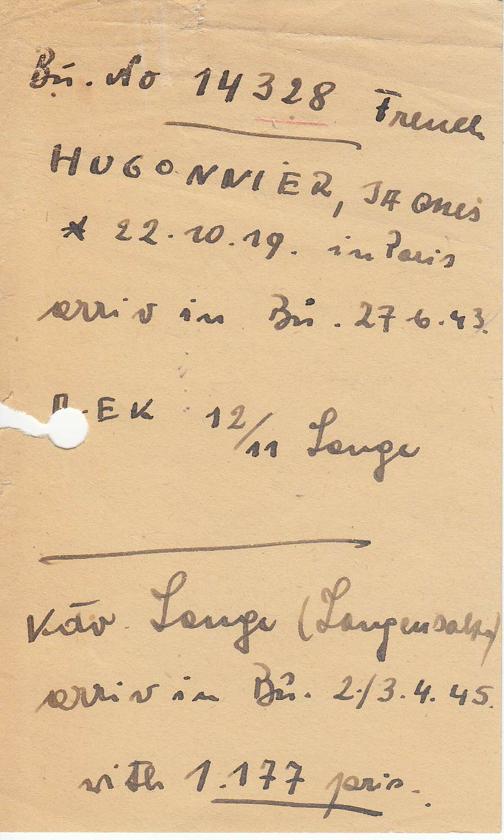 Bú. No 14328 French
HUGONNIER, JAQUES
* 22.10.19. in Paris
arriv in Bú. 27.6.43.
EK 12/11 Lange
Kdo. Lange (Langensalza)
arriv in Bú. 2./3.4.45.
with 1.177 pris.